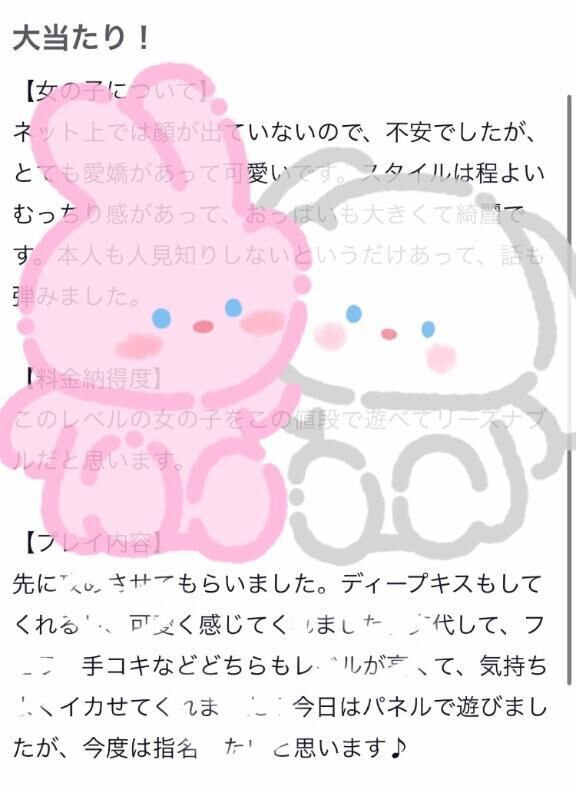 大当たり！
【女の子について】
ネット上では顔が出ていないので、不安でしたが、
とても愛嬌があって可愛いです。スタイルは程よい
むっちり感があって、おっぱいも大きくて綺麗で
す。本人も人見知りしないというだけあって、話も
弾みました。
【料金納得度】
このレベルの女の子をこの値段で遊べてリーズナブ
ルだと思います。
【プレイ内容】
先に させてもらいました。ディープキスもして
くれる 可愛く感じてく ました 代して、フ
手コキなどどちらもレベルが高 て、気持ち
イカせてくれま 今日はパネルで遊びまし
たが、今度は指名 と思います♪